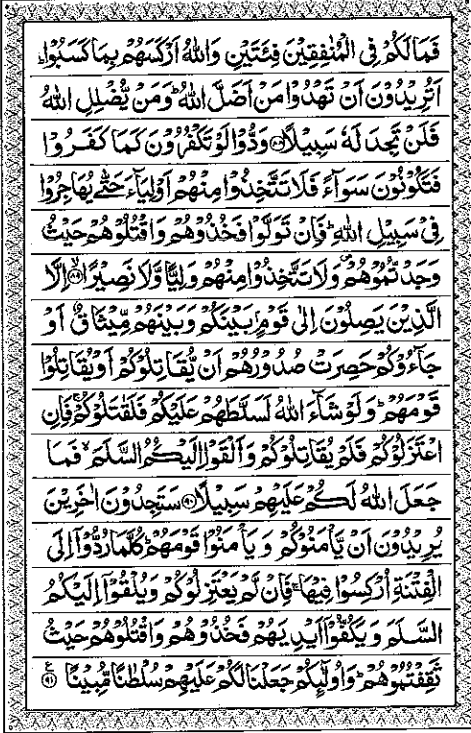 فَمَا لَكُمْ فِی الْمُنٰفِقِیْنَ فِئَتَیْنِ وَاللّٰهُ اَرْكَسَهُمْ بِمَا كَسَبُوْا ؕ
اَتُرِیْدُوْنَ اَنْ تَهْدُوْا مَنْ اَضَلَّ اللّٰهُ ؕ وَمَنْ یُّضْلِلِ اللّٰهُ
فَلَنْ تَجِدَ لَهٗ سَبِیْلًا ﴿۸۸﴾ وَدُّوْا لَوْ تَكْفُرُوْنَ كَمَا كَفَرُوْا
فَتَكُوْنُوْنَ سَوَآءً فَلَا تَتَّخِذُوْا مِنْهُمْ اَوْلِیَآءَ حَتّٰی یُهَاجِرُوْا
فِیْ سَبِیْلِ اللّٰهِ ؕ فَاِنْ تَوَلَّوْا فَخُذُوْهُمْ وَاقْتُلُوْهُمْ حَیْثُ
وَجَدْتُّمُوْهُمْ ۪ وَلَا تَتَّخِذُوْا مِنْهُمْ وَلِیًّا وَّلَا نَصِیْرًا ﴿۸۹﴾ اِلَّا
الَّذِیْنَ یَصِلُوْنَ اِلٰی قَوْمٍۭ بَیْنَكُمْ وَبَیْنَهُمْ مِّیْثَاقٌ اَوْ
جَآءُوْكُمْ حَصِرَتْ صُدُوْرُهُمْ اَنْ یُّقَاتِلُوْكُمْ اَوْ یُقَاتِلُوْا
قَوْمَهُمْ ؕ وَلَوْ شَآءَ اللّٰهُ لَسَلَّطَهُمْ عَلَیْكُمْ فَلَقٰتَلُوْكُمْ ۚ فَاِنِ
اعْتَزَلُوْكُمْ فَلَمْ یُقَاتِلُوْكُمْ وَاَلْقَوْا اِلَیْكُمُ السَّلَمَ ۙ فَمَا
جَعَلَ اللّٰهُ لَكُمْ عَلَیْهِمْ سَبِیْلًا ﴿۹۰﴾ سَتَجِدُوْنَ اٰخَرِیْنَ
یُرِیْدُوْنَ اَنْ یَّاْمَنُوْكُمْ وَیَاْمَنُوْا قَوْمَهُمْ ؕ كُلَّمَا رُدُّوْۤا اِلَی
الْفِتْنَةِ اُرْكِسُوْا فِیْهَا ۚ فَاِنْ لَّمْ یَعْتَزِلُوْكُمْ وَیُلْقُوْۤا اِلَیْكُمُ
السَّلَمَ وَیَكُفُّوْۤا اَیْدِیَهُمْ فَخُذُوْهُمْ وَاقْتُلُوْهُمْ حَیْثُ
ثَقِفْتُمُوْهُمْ ؕ وَاُولٰٓئِكُمْ جَعَلْنَا لَكُمْ عَلَیْهِمْ سُلْطٰنًا مُّبِیْنًا ﴿۹۱﴾ ع